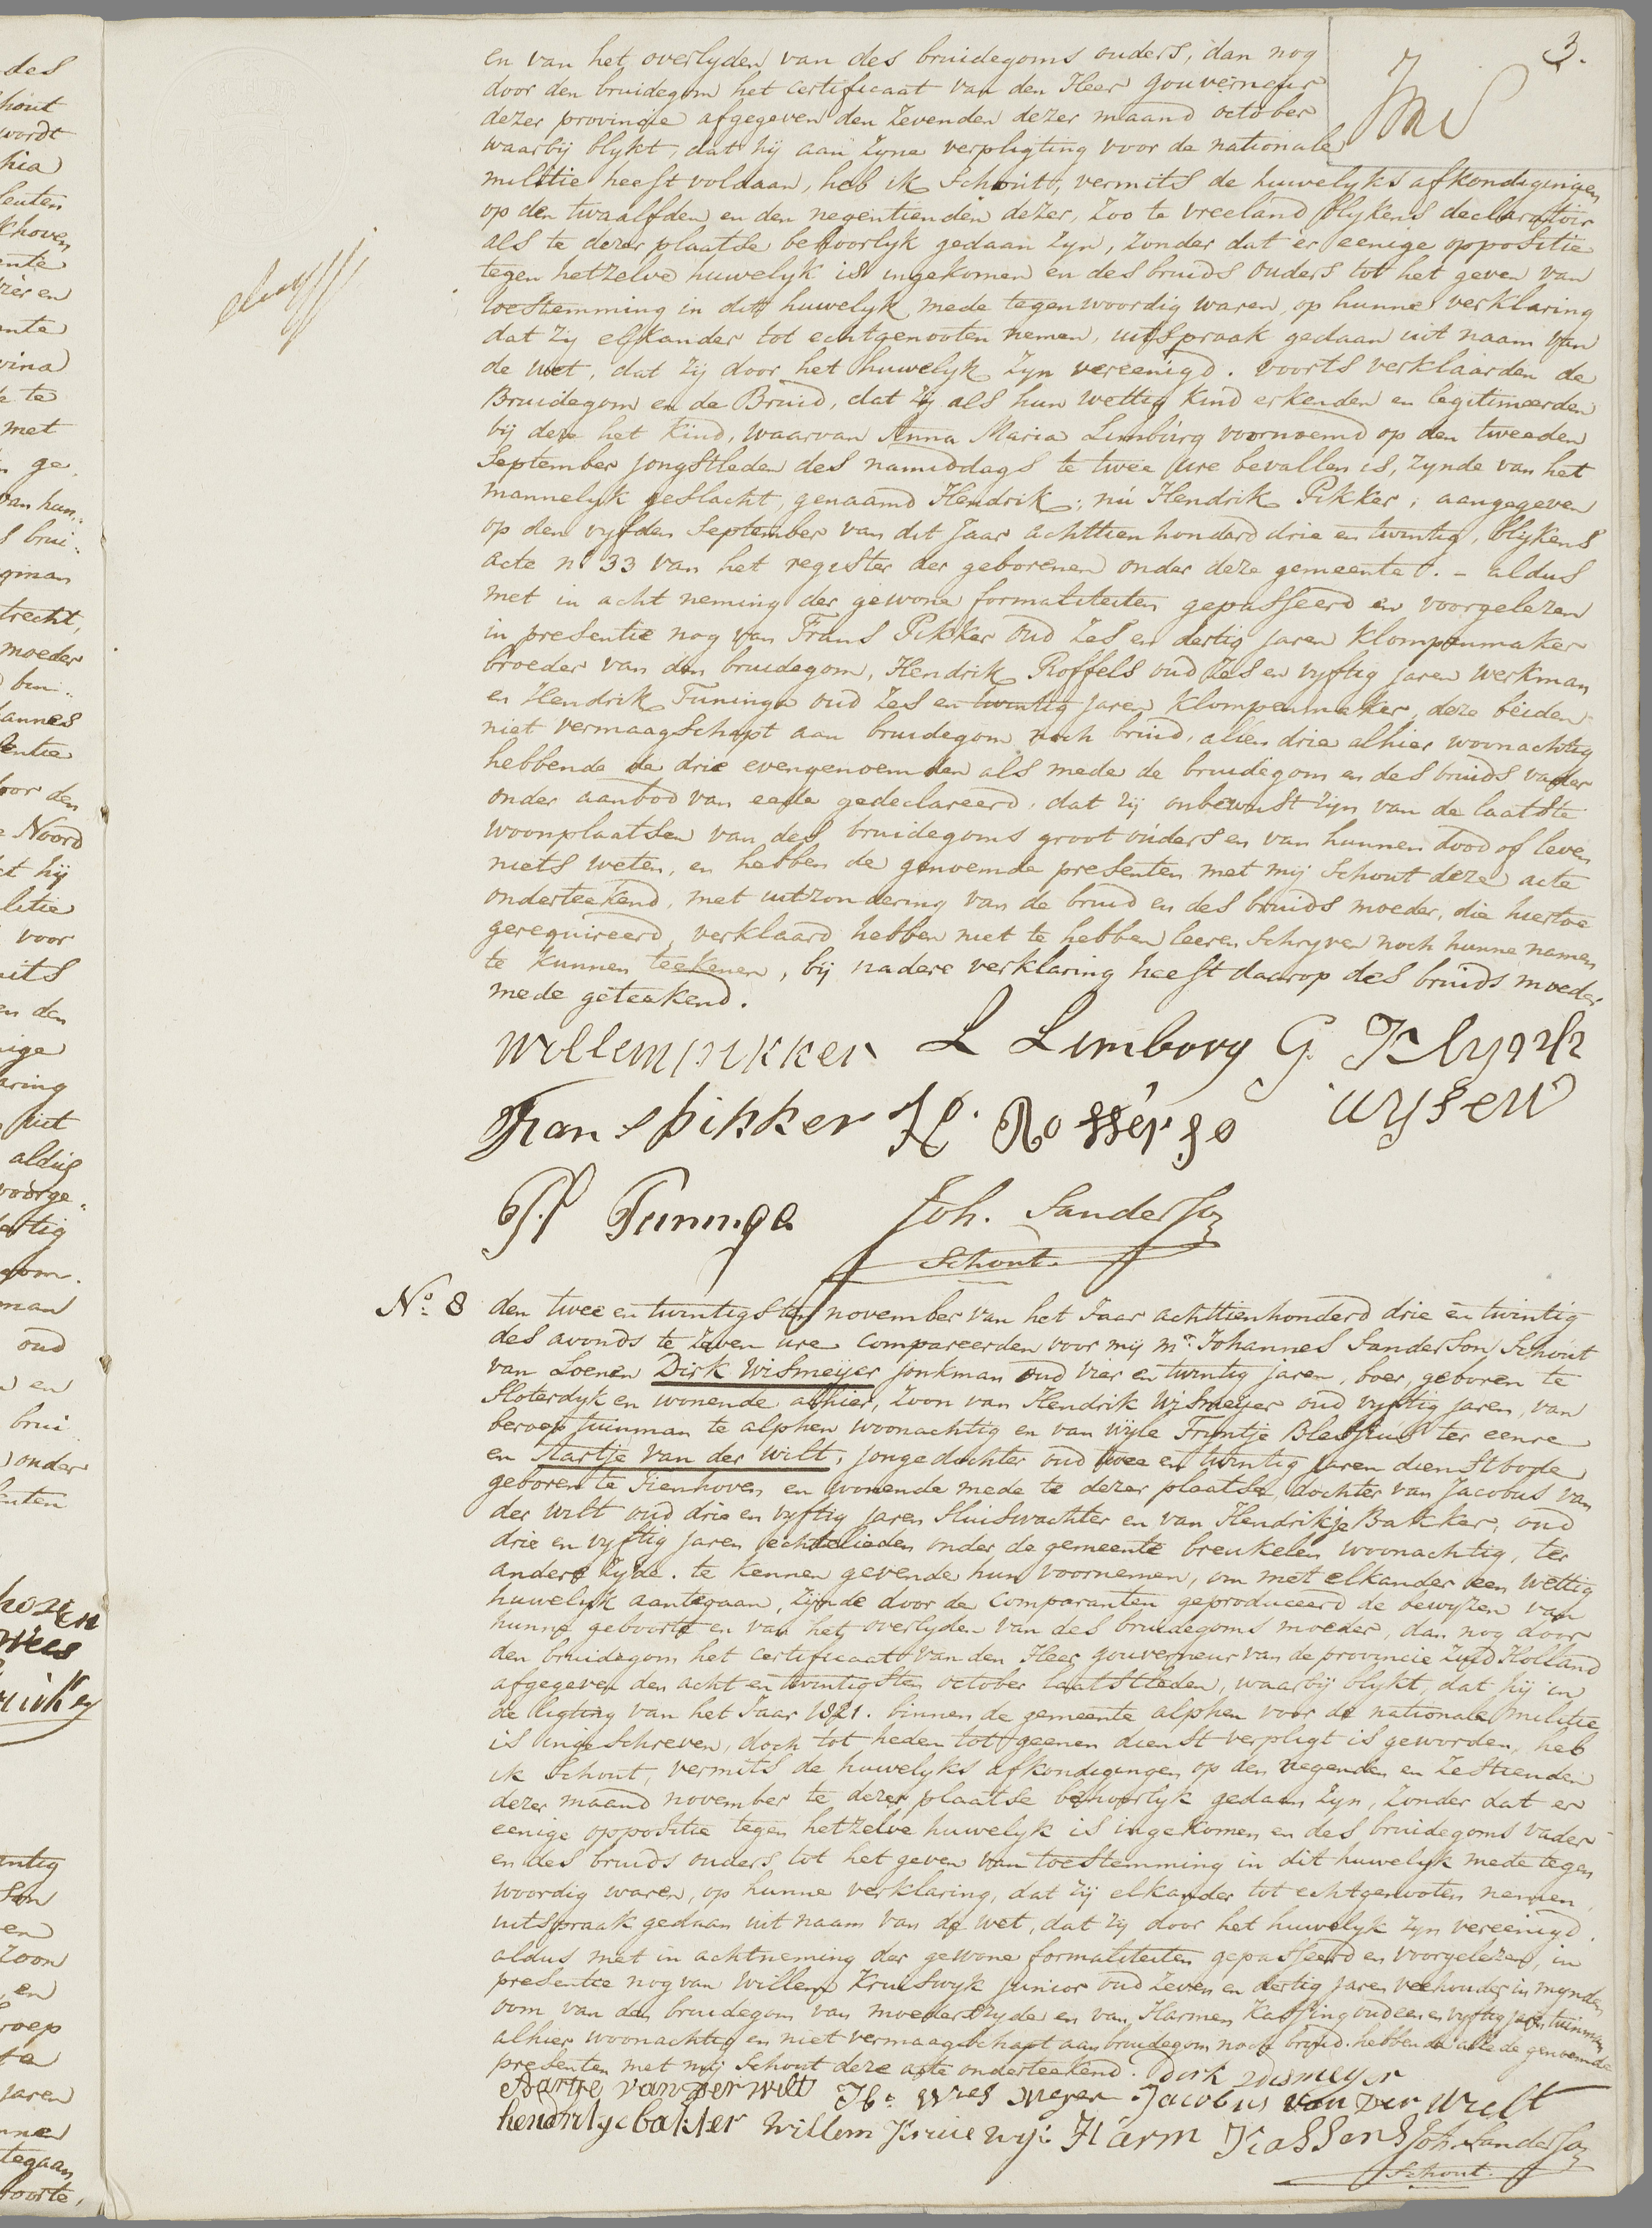 3.
en van het overlyden van des bruidegoms ouders, dan nog
door den bruidegom het certificaat van den Heer Gouverneur
dezer provincie afgegeven den Zevenden dezer maand october
waarbij blykt, dat hij aan Zyne verpligting voor de nationale
militie heeft voldaan, heb ik Schout, vermits de huwelyks afkondigingen
op den twaalfden en den negentienden dezer, Zoo te vreeland blykens declaratoir
als te dezer plaatse behoorlyk gedaan Zyn, Zonder dat er eenige oppositie
tegen hetzelve huwelyk is ingekomen en des bruids ouders tot het geven van
toestemming in dit huwelyk mede tegenwoordig waren, op hunne verklaring
dat Zy elkander tot echtgenooten nemen, uitspraak gedaan uit naam van
de wet, dat Zij door het huwelyk Zyn vereenigd. voorts verklaarden de
Bruidegom en de Bruid, dat Zij als hun wettig Kind erkenden en legitimeerden
bij deze het Kind, waarvan Anna Maria Limburg voornoemd op den tweeden
September jongstleden des namiddags te twee ure bevallen is, Zynde van het
mannelyk geslacht, genaamd Hendrik; nu Hendrik Pikker; aangegeven
op den vyfden September van dit Jaar achttienhonderd drie en twintig, blykens
acte n° 33 van het register der geborenen onder deze gemeente. – aldus
met in acht neming der gewone formaliteiten gepasseerd en voorgelezen
in presentie nog van Frans Pikker oud Zes en dertig Jaren Klompenmaker
broeder van den bruidegom, Hendrik Roffels oud Zes en vyftig Jaren werkman
en Hendrik Tuninga oud Zes en twintig Jaren Klompenmaker, deze beiden
niet vermaagschapt aan bruidegom noch bruid, allen drie alhier woonachtig
hebbende de drie evengenoemden als mede de bruidegom en des bruids vader
onder aanbod van eede gedeclareerd, dat Zij onbewust Zijn van de laatste
woonplaatsen van des bruidegoms groot ouders en van hunnen dood of leven
niets weten, en hebben de genoemde presenten met mij Schout deze acte
onderteekend, met uitzondering van de bruid en des bruids moeder, die hiertoe
gerequireerd, verklaard hebben niet te hebben leeren Schryven noch hunne namen
te Kunnen teekenen, bij nadere verklaring heeft daarop des bruids moeder
mede geteekend.
Willem pikker L Limborg G. Klynh
Frans pikker H. uysen
H Tuninga Joh. Sanderson
Schout.
No. 8 den twee en twintigsten november van het Jaar achttienhonderd drie en twintig
des avonds te Zeven ure compareerden voor mij mr. Johannes Sanderson Schout
van Loenen Dirk Wismeijer jonkman oud vier en twintig Jaren, boer, geboren te
Sloterdyk en wonende alhier, Zoon van Hendrik Wismeijer oud vyftig Jaren, van
beroep tuinman te alphen woonachtig en van wyle Tryntje Blessius ter eenre
en Aartje van der Wilt, jongedochter oud twee en twintig Jaren dienstbode
geboren te Tienhoven en wonende mede te dezer plaatse, dochter van Jacobus van
der Wilt oud drie en vyftig Jaren Sluiswachter en van Hendrikje Bakker, oud
drie en vyftig Jaren echtelieden onder de gemeente breukelen woonachtig, ter
andere Zyde. te Kennen gevende hun voornemen, om met elkander een wettig
huwelyk aantegaan, Zijnde door de comparanten geproduceerd de bewyzen van
hunne geboorte en van het overlyden van des bruidegoms moeder, dan nog door
den bruidegom het certificaat van den Heer gouverneur van de provincie Zuid Holland
afgegeven den acht en twintigsten october laatstleden, waarbij blykt, dat hij in
de ligting van het Jaar 1821. binnen de gemeente alphen voor de nationale militie
is ingeschreven, doch tot heden tot geenen dienst verpligt is geworden, heb
ik Schout, vermits de huwelyks afkondigingen op den negenden en Zestienden
dezer maand november te dezer plaatse behoorlyk gedaan Zyn, Zonder dat er
eenige oppositie tegen hetzelve huwelyk is ingekomen en des bruidegoms vader
en des bruids ouders tot het geven van toestemming in dit huwelyk mede tegen
woordig waren, op hunne verklaring, dat Zij elkander tot echtgenooten nemen,
uitspraak gedaan uit naam van de wet, dat Zij door het huwelyk Zyn vereenigd.
aldus met in achtneming der gewone formaliteiten gepasseerd en voorgelezen, in
presentie nog van Willem Kruiswyk junior oud Zeven en dertig Jaren veehouder in mynden
oom van den bruidegom van moeders Zyde en van Harmen Kassing oud een en vyftig jaren tuinman
alhier woonachtig en niet vermaagschapt aan bruidegom noch bruid. hebbende alle de genoemde
presenten met mij Schout deze acte onderteekend. Dirk wismeyer
Aartje van der wilt Wies meyer Jacobus van der Wilt
hendrikje bakker Willem Kruiswyk Harm Kassens Joh. Sanderson
Schout.